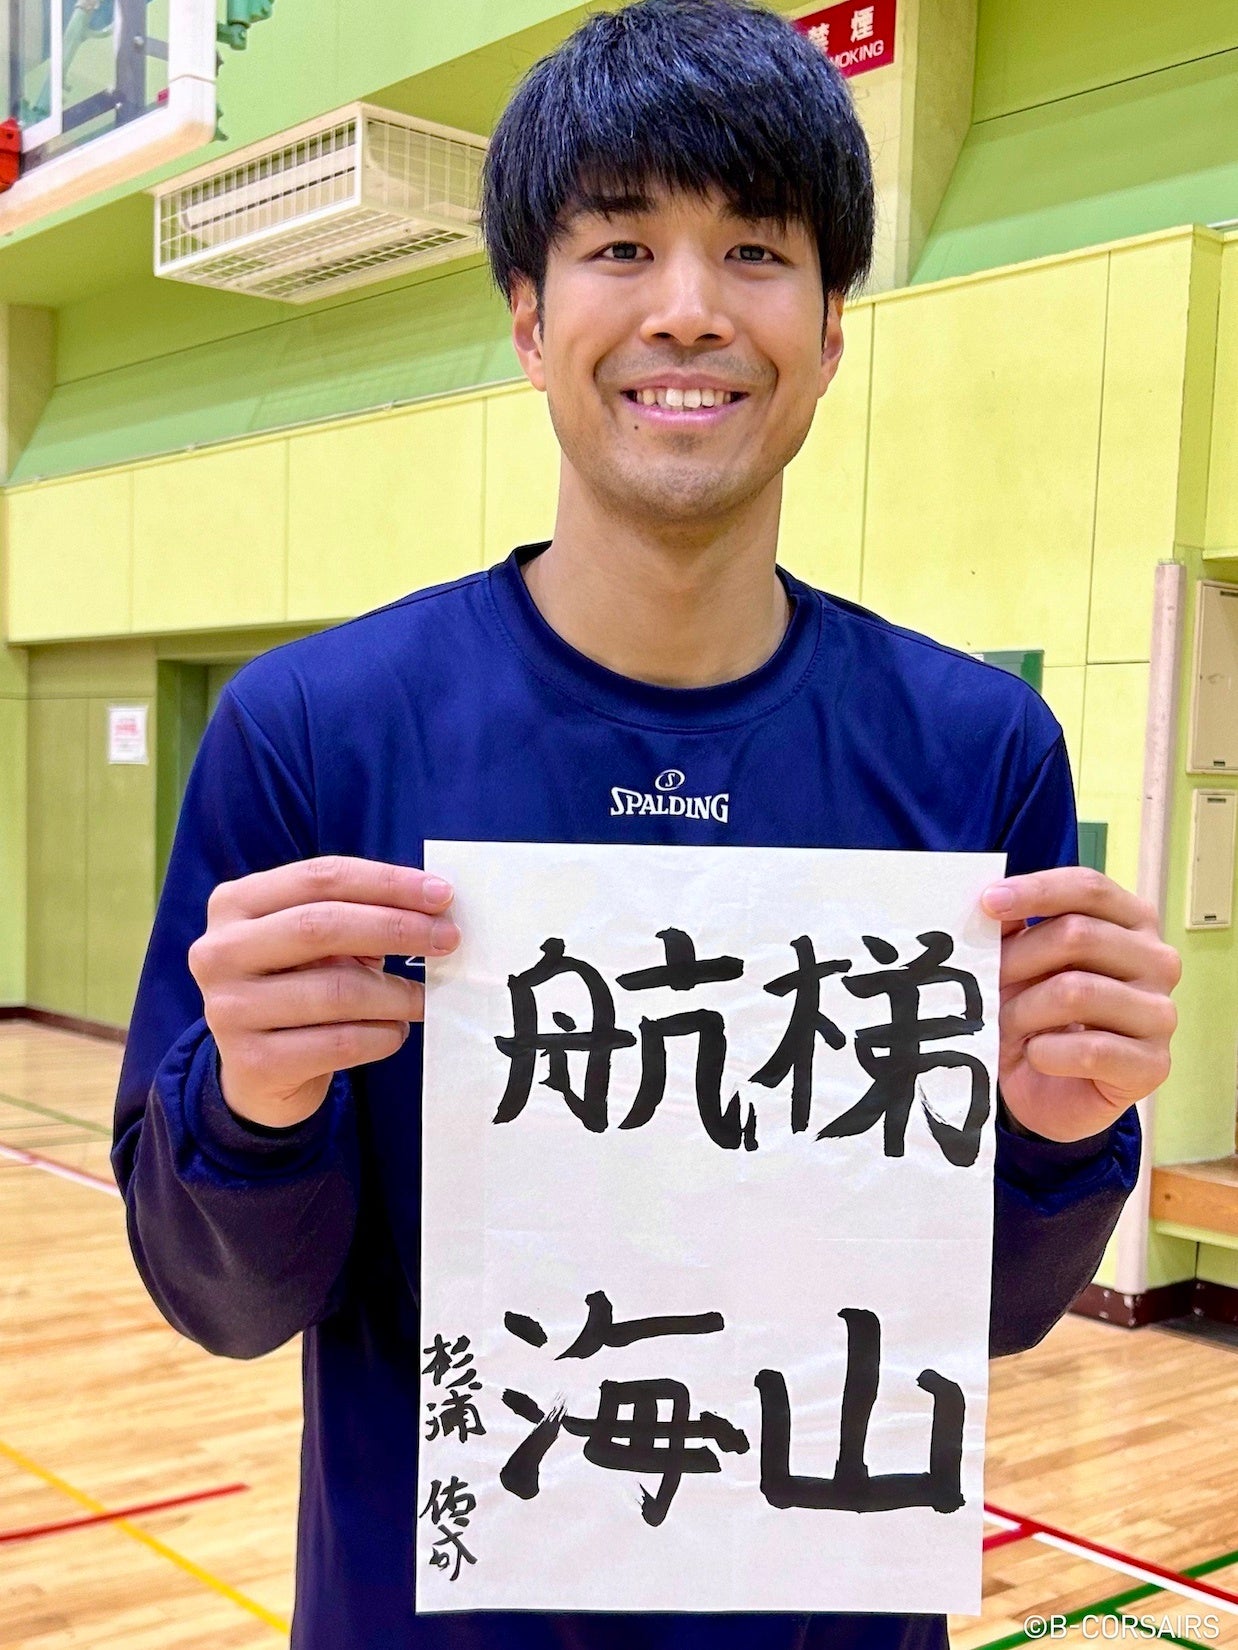 禁煙
SMOKING
SPALDING
梯山
航海
杉浦 佑成
©B-CORSAIRS